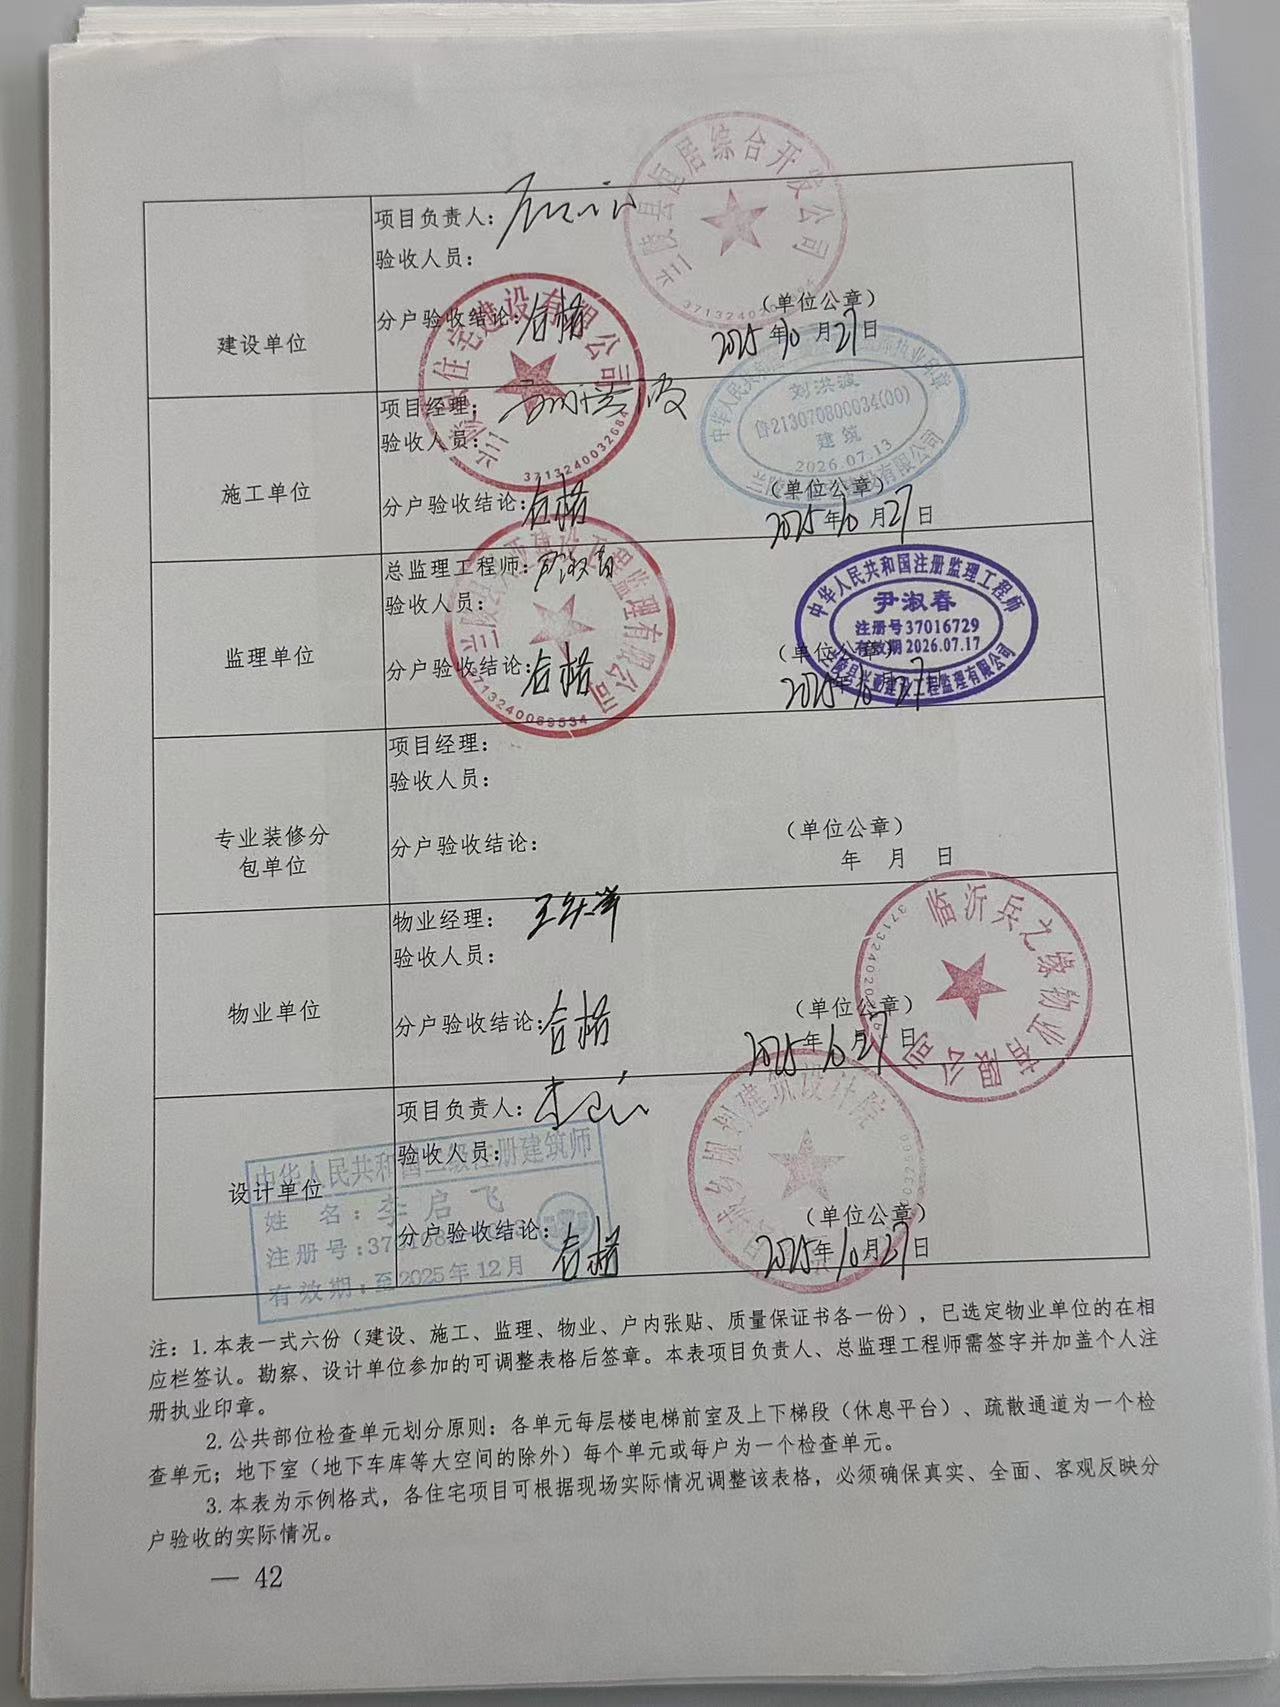 兰陵县宜居综合开发公司
项目负责人：
验收人员：
分户验收结论：合格
（单位公章）
2025年10月27日
建设单位
住宅建设有限公司
3713240032684
项目经理：
验收人员：
刘洪波
鲁213070800034(00)
建筑
2026.07.13
分户验收结论：合格
（单位公章）
2025年10月27日
施工单位
总监理工程师：尹淑春
验收人员：
中华人民共和国注册监理工程师
尹淑春
注册号37016729
有效期2026.07.17
兰陵县兴亚建设工程监理有限公司
分户验收结论：合格
（单位公章）
2025年10月27日
监理单位
3713240069534
项目经理：
验收人员：
专业装修分
包单位
分户验收结论：
（单位公章）
年 月 日
物业经理：
验收人员：
临沂兵之缘物业有限公司
物业单位
分户验收结论：合格
（单位公章）
2025年10月27日
项目负责人：
验收人员：
建筑设计院
中华人民共和国二级注册建筑师
设计单位
姓 名：李启飞
注册号：
有效期：至2025年12月
分户验收结论：合格
（单位公章）
2025年10月27日
注：1.本表一式六份（建设、施工、监理、物业、户内张贴、质量保证书各一份），已选定物业单位的在相
应栏签认。勘察、设计单位参加的可调整表格后签章。本表项目负责人、总监理工程师需签字并加盖个人注
册执业印章。
2.公共部位检查单元划分原则：各单元每层楼电梯前室及上下梯段（休息平台）、疏散通道为一个检
查单元；地下室（地下车库等大空间的除外）每个单元或每户为一个检查单元。
3.本表为示例格式，各住宅项目可根据现场实际情况调整该表格，必须确保真实、全面、客观反映分
户验收的实际情况。
— 42